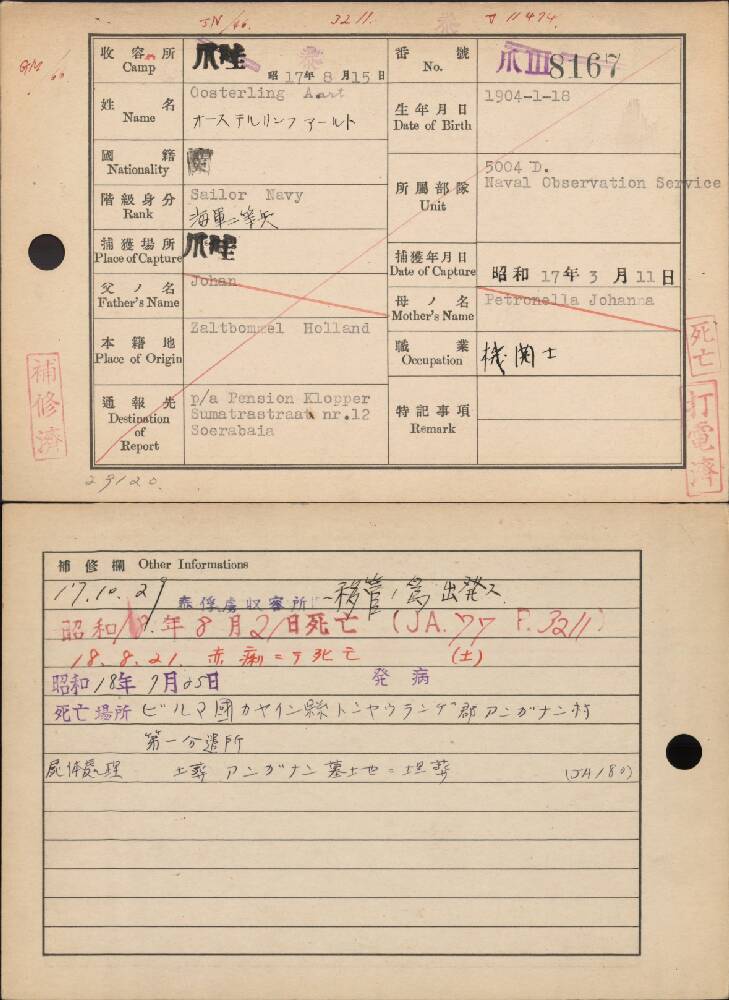 JN/60. 3211. 泰 J 11474.
GM/60
收容所 Camp 爪哇 泰
昭 17年 8月15日
番號 No. 爪III 8167
姓名 Name Oosterling Aart
オーステルリンフ アールト
生年月日 Date of Birth 1904-1-18
國籍 Nationality 蘭
階級身分 Rank Sailor Navy
海軍二等兵
所屬部隊 Unit 5004 D.
Naval Observation Service
捕獲場所 Place of Capture 爪哇
捕獲年月日 Date of Capture 昭和 17年 3月 11日
父ノ名 Father's Name Johan
母ノ名 Mother's Name Petronella Johanna
本籍地 Place of Origin Zaltbommel Holland
職業 Occupation 機関士
通報先 Destination of Report p/a Pension Klopper
Sumatrastraat nr.12
Soerabaia
特記事項 Remark
補修濟
死亡
打電濟
29120.
補修欄 Other Informations
17.10.29 泰俘虜収容所ニ移管ノ為出発ス
昭和18年8月21日死亡 (JA.77 P.3211)
18.8.21. 赤痢ニテ死亡 (土)
昭和18年7月25日 発病
死亡場所 ビルマ國カヤイン縣トンヤウランゲ郡アンガナン村
第一分遣所
屍体處理 土葬 アンガナン墓土也ニ埋葬 (JA180)